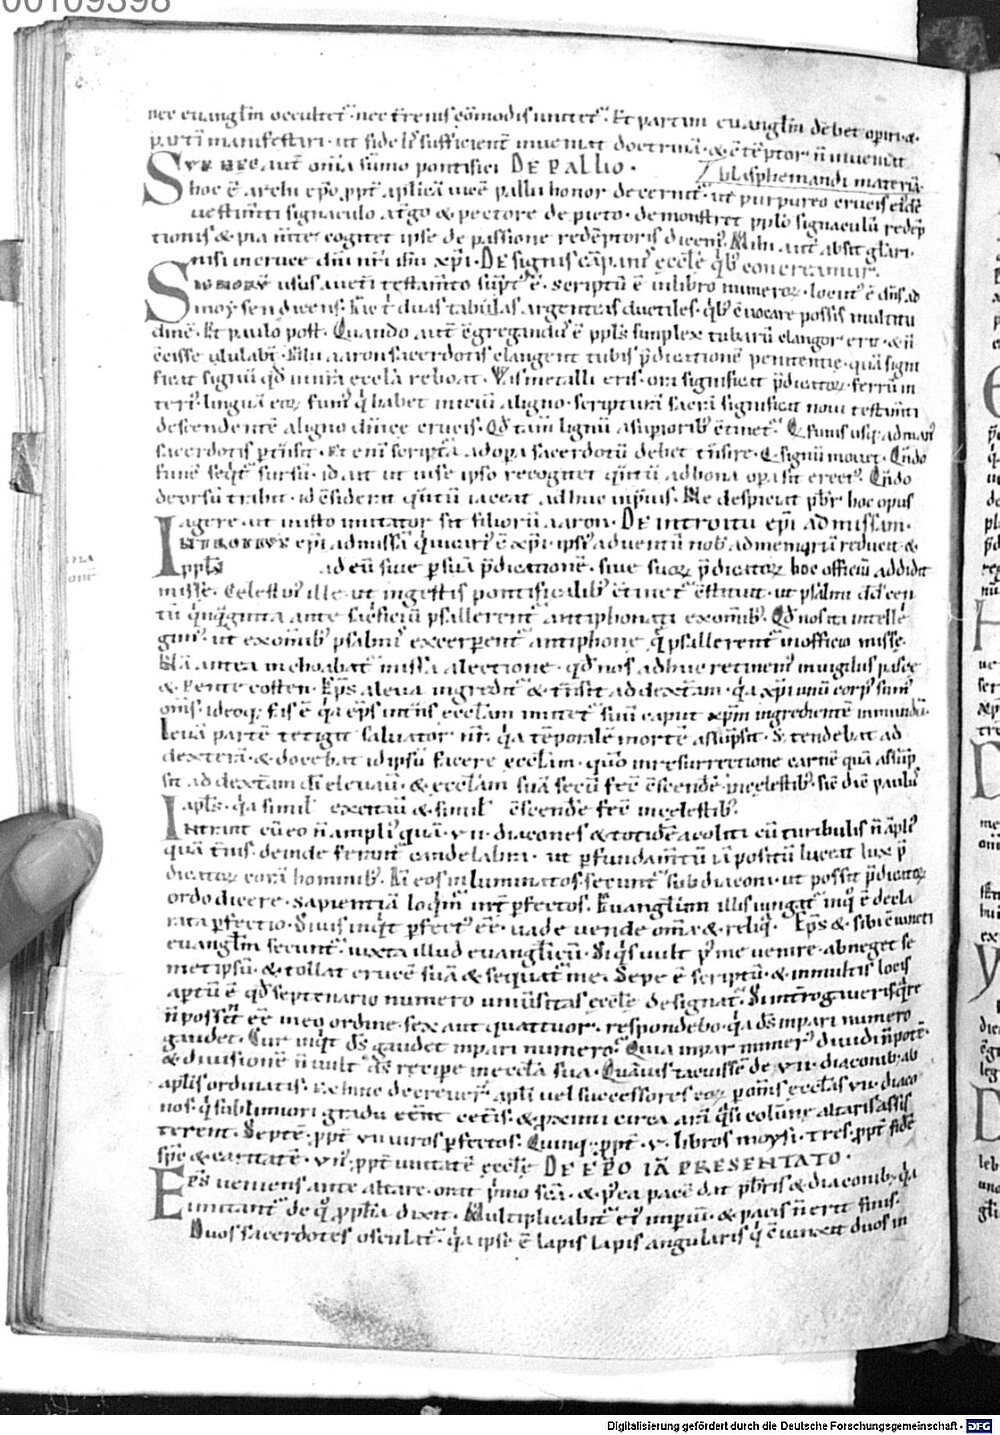 00109398
nec euangliū occultet᷑ · nec t̄renis cōmodis uitet᷑ · Et partim euangliū debet operiri ·
partī manifestari · ut fideles sufficient̄ inueniat doctrinā · & ctēptor n̄ inueniat
blasphemandi materiā.
SVPER hec aut̄ omia sūmo pontifici DE PALLIO ·
hoc ē archi epo, ppt̄ aplicā uicē pallii honor decernit᷑ · ut purpureo crucis eidē
uestimti signaculo at̄go & pectore depicto · demonstret pplo signaculū redēp
tionis & pia m̄te cogitet ipse de passione redēptoris dicens · Mihi aut̄ absit glari ·
nisi in cruce dn̄i nr̄i ihu xpi · DE signis cāpanis eccle q̇b᷒ conuocamur.
SIGNORV̄ usus a ueti testam̄to sūpt᷒ ē · scriptū ē in libro numeroꝝ · locut᷒ ē dn̄s ad
moysen dicens · Fac t̄ duas tabulas argenteas ductiles · q̇b᷒ cuocare possis multitu
dinē · Et paulo post · Quando aut̄ cgregand᷒ ē ppls simplex tubarū clangor erit · & n̄
ccisse ululabt̄ · Filii aaron sacerdotis clangent tubis p̄dicationē penitentie · quā signi
ficat signū qd̄ in nr̄a eccla reboat · Vas metalli eris · ora significat p̄dicatoꝝ · ferrū in
teri᷒ linguā eoꝝ · funis q̇ habet iniciū a ligno · scripturā sacrā significat noui testam̄ti
descendentē a ligno diuice crucis · Qd̄ tam lignū a supiorib᷒ ctinet᷑ · Et funis usq; ad man᷒
sacerdotis ptīsit · Et eni scriptā ad opa sacerdotū debet tn̄sire · Et signū mouet · Qn̄do
funē seq̇t᷑ sursū · id ait ut in se ipso recogitet q̇ntū ad bona opa sit erect᷒ · Qn̄do
deorsū trahit · id csiderit q̇ntū iaceat adhuc in prauis · Ne despiciat pbr̄ hoc opus
agere · ut iusto imitator sit filiorū aaron · DE introitu ep̄i ad missam ·
INTROITVS ep̄i ad missā q̇ uicari᷒ ē xpi · ipsi᷒ aduentū nob᷒ ad memoriā reducit &
ppls ad eū siue p suā p̄dicationē · siue suoꝝ p̄dicatoꝝ hoc officiū addidit
misse · Celestin᷒ ille · ut in gestis pontificalib᷒ ctinet᷑ cstituit · ut psalmi dd̄ cen
tū q̇nq̇ginta ante sac̄ficiū psallerent᷑ antiphonati ex omib᷒ · Qd̄ nos ita intelle
gim᷒ · ut ex omib᷒ psalmis excerpent᷑ antiphone q̇ psallerent᷑ in officio misse ·
Nā antea inchoabat᷑ missa a lectione · qd̄ nos adhuc retinem᷒ in uigiliis pasce
& pente costen · Ep̄s a leua ingredit᷑ & tn̄sit ad dextram · q̇a xpi unū corp᷒ sum᷒
om̄s · ideoq; fas ē q̇a ep̄s uit̄ns eccl̄am imitet᷑ suū caput xpm ingredientē in mundū ·
Leuā partē tetigit saluator nr̄ · q̇a tēporalē mortē assūpsit · & tendebat ad
dexterā · & docebat id ipsū facere eccl̄am · quō in resurrectione carnē quā assūp
sit ad dextram di eleuauit · & eccl̄am suā secū fecē cscendē in celestib᷒ · sic dic̄ paulus
apls · q̇a simul excitauit & simul cscendē fecē in celestib᷒
INtrant cū eo n̄ ampli᷒ quā · VII · diacones & totidē acoliti cū turibulis n̄ āpli᷒
quā tribus · deinde feront᷑ candelabra · ut p fundam̄tū iā positū luceat lux p̄
dicatoꝝ corā hominib᷒ · At eos in luminatos secunt᷑ subdiaconi · ut possit p̄dicatoꝝ
ordo dicere · sapientiā loq̇m᷒ int̄ pfectos · Euanglium illis iungat᷑ in q̇ ē decla
rata pfectio · Si uis inq̇t pfect᷒ ēē · uade uende om̄ia & reliq̇ · Ep̄s & sibi ciuncti
euanglīm secunt᷑ iuxta illud euanglicū · Siq̇s uult p᷒ me uenire · abneget se
met ipsū · & tollat crucē suā & sequat᷑ me · Sepe ē scriptū · & in multis locis
aptū ē qd̄ septenario numero uniūsitas eccle designat᷑ · Si int̄rogaueris q̇re
n̄ possit ēē in eo ordine · sex aut quattuor · respondebo · q̇a ds̄ inpari numero
gaudet · Cur inq̇t ds̄ gaudet inpari numero? Quia inpar numer᷒ diuidi n̄ potē
& diuisionē n̄ uult ds̄ recipe in eccla sua · Quāuis tacuisse de VII · diaconib᷒ ab
aplis ordinatis · Ex hinc decreuer᷑ apli uel successores eoꝝ p om̄s eccl̄as VII · diaco
nos · q̇ sublimiori gradu ēent cet̄is · & pximi circa arā q̇si colūne altaris assis
terent · Septē ppt᷑ VII uiros pfectos · Quinq; ppt᷑ V · libros moysi · Tres · ppt᷑ fidē
spē & caritatē · Vn᷒ · ppt᷑ unitatē eccle DE EP̄O IĀ PRESENTATO ·
EP̄s ueniens ante altare · orat p̄mo scā · & p᷒ ea pacē dat pbr̄is & diaconib᷒ · q̇a
imitant᷑ de q̇ pphīa dixit · Multiplicabit᷑ ei᷒ impiū · & pacis n̄ erit finis ·
Duos sacerdotes osculat᷑ · q̇a ipse ē lapis lapis angularis q̇ ciunxit duos in
Digitalisierung gefördert durch die Deutsche Forschungsgemeinschaft - DFG